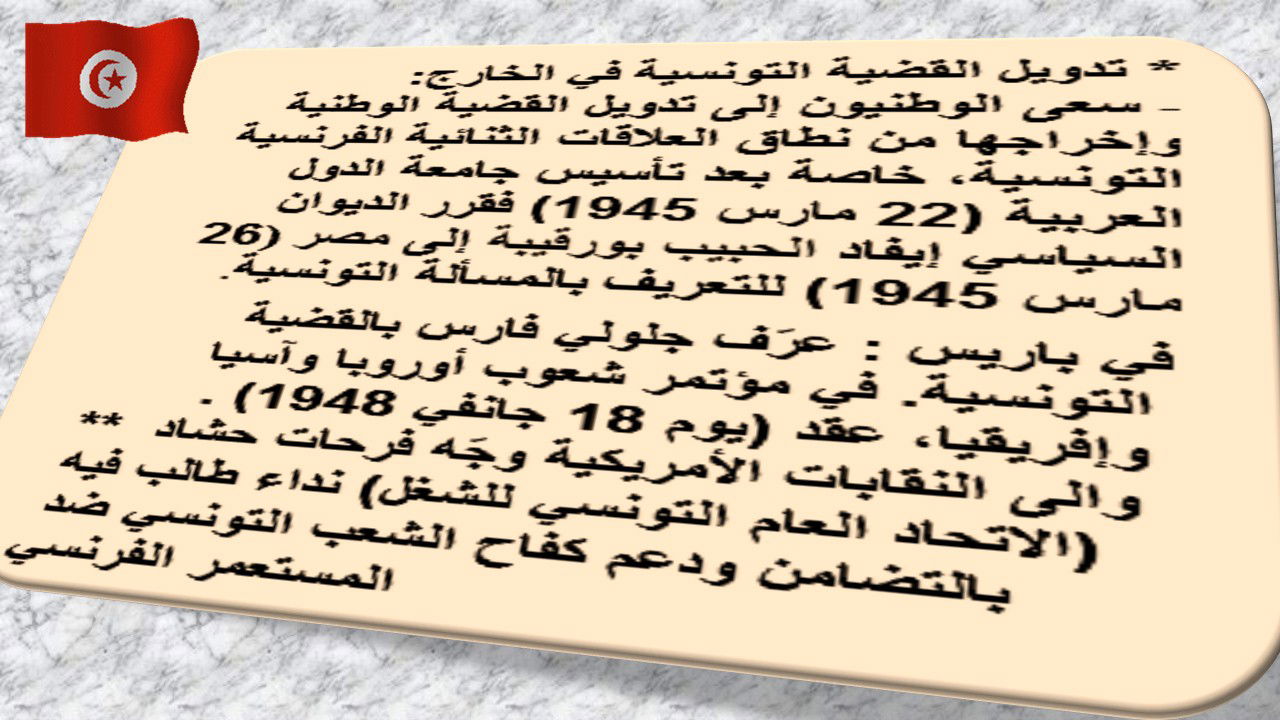 * تدويل القضية التونسية في الخارج:
- سعى الوطنيون إلى تدويل القضية الوطنية
وإخراجها من نطاق العلاقات الثنائية الفرنسية
التونسية، خاصة بعد تأسيس جامعة الدول
العربية (22 مارس 1945) فقرر الديوان
السياسي إيفاد الحبيب بورقيبة إلى مصر (26
مارس 1945) للتعريف بالمسألة التونسية.
في باريس : عرَف جلولي فارس بالقضية
التونسية. في مؤتمر شعوب أوروبا وآسيا
وإفريقيا، عقد (يوم 18 جانفي 1948) .
والى النقابات الأمريكية وجَه فرحات حشاد **
(الاتحاد العام التونسي للشغل) نداء طالب فيه
بالتضامن ودعم كفاح الشعب التونسي ضد
المستعمر الفرنسي